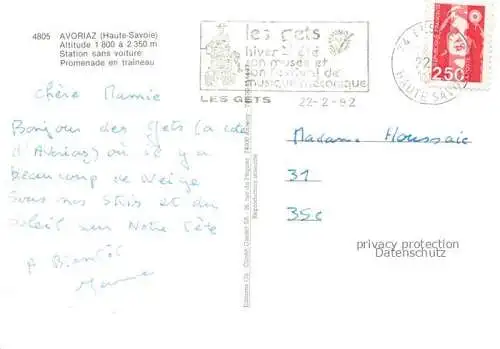 4805 AVORIAZ (Haute-Savoie)
Altitude 1 800 à 2 350 m
Station sans voiture
Promenade en traîneau
les gets
hiver été
son musée et
son festival de
musique mécanique
LES GETS 22-2-92
HAUTE SAVOIE
2,50
Chère Mamie
Bonjour des Gets (a côté
d'Avoriaz) où il y a
beaucoup de Neige
Sous nos Skis et du
soleil sur Notre Tête
A Bientôt
Madame Houssaie
31
35c
privacy protection
Datenschutz
Reproduction interdite